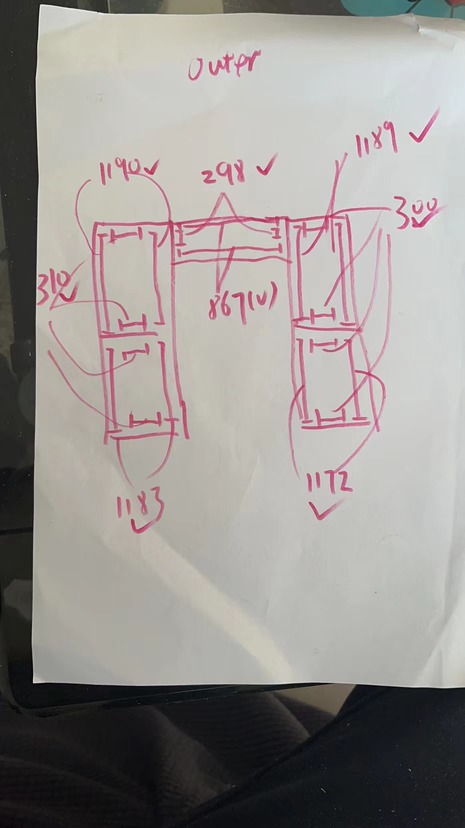 outer
1190✓
298✓
1189✓
300✓
310✓
867(v)
1183✓
1172✓